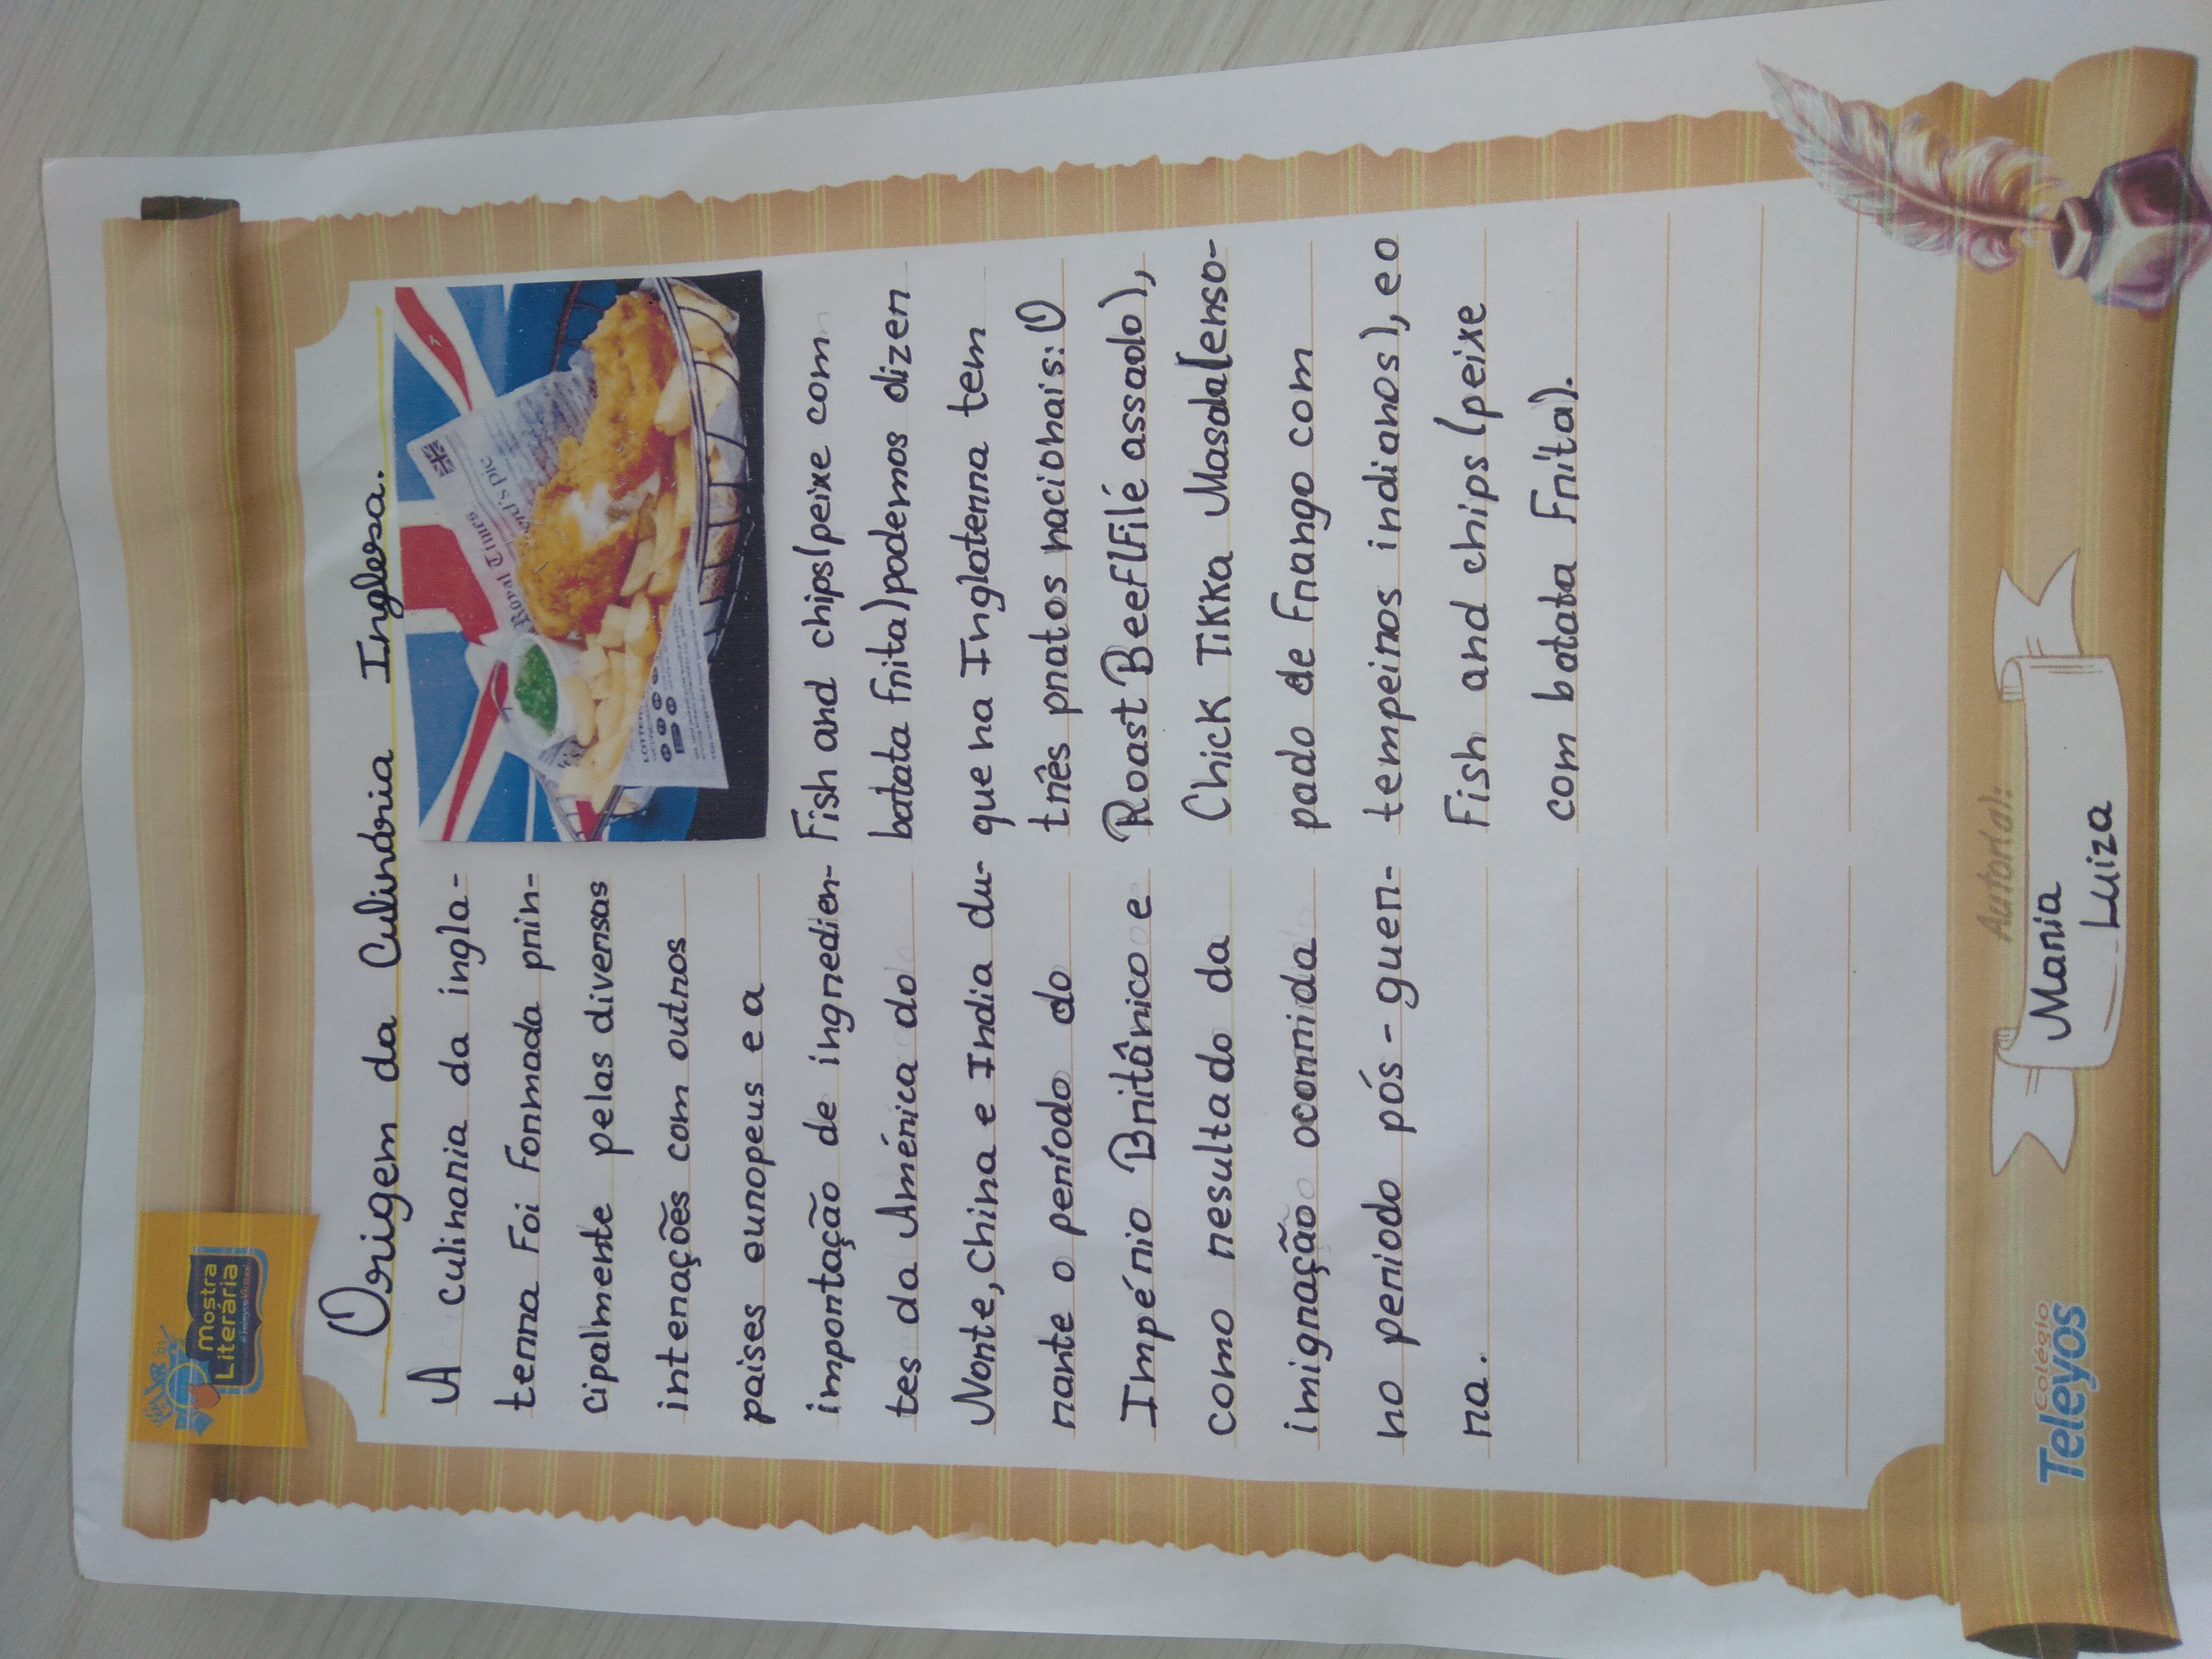 Mostra
Literária
Origem da Culinária Inglesa.
A culinaria da ingla-
terra Foi Formada prin-
cipalmente pelas diversas
interações com outros
paises europeus e a
importação de ingredien-
tes da América do
Norte, China e India du-
rante o período do
Império Britânico e
como resultado da
imigração ocorrida
no periodo pós-guer-
ra.
Royal Times
LOTTER
Fish and chips (peixe com
batata frita) podemos dizer
que na Inglaterra tem
três pratos nacionais: O
Roast Beef (Filé assado),
Chick Tikka Masala (enso-
pado de Frango com
temperos indianos), e o
Fish and chips (peixe
com batata Frita).
Autor(a):
Maria
Luiza
Colégio
Teleyos